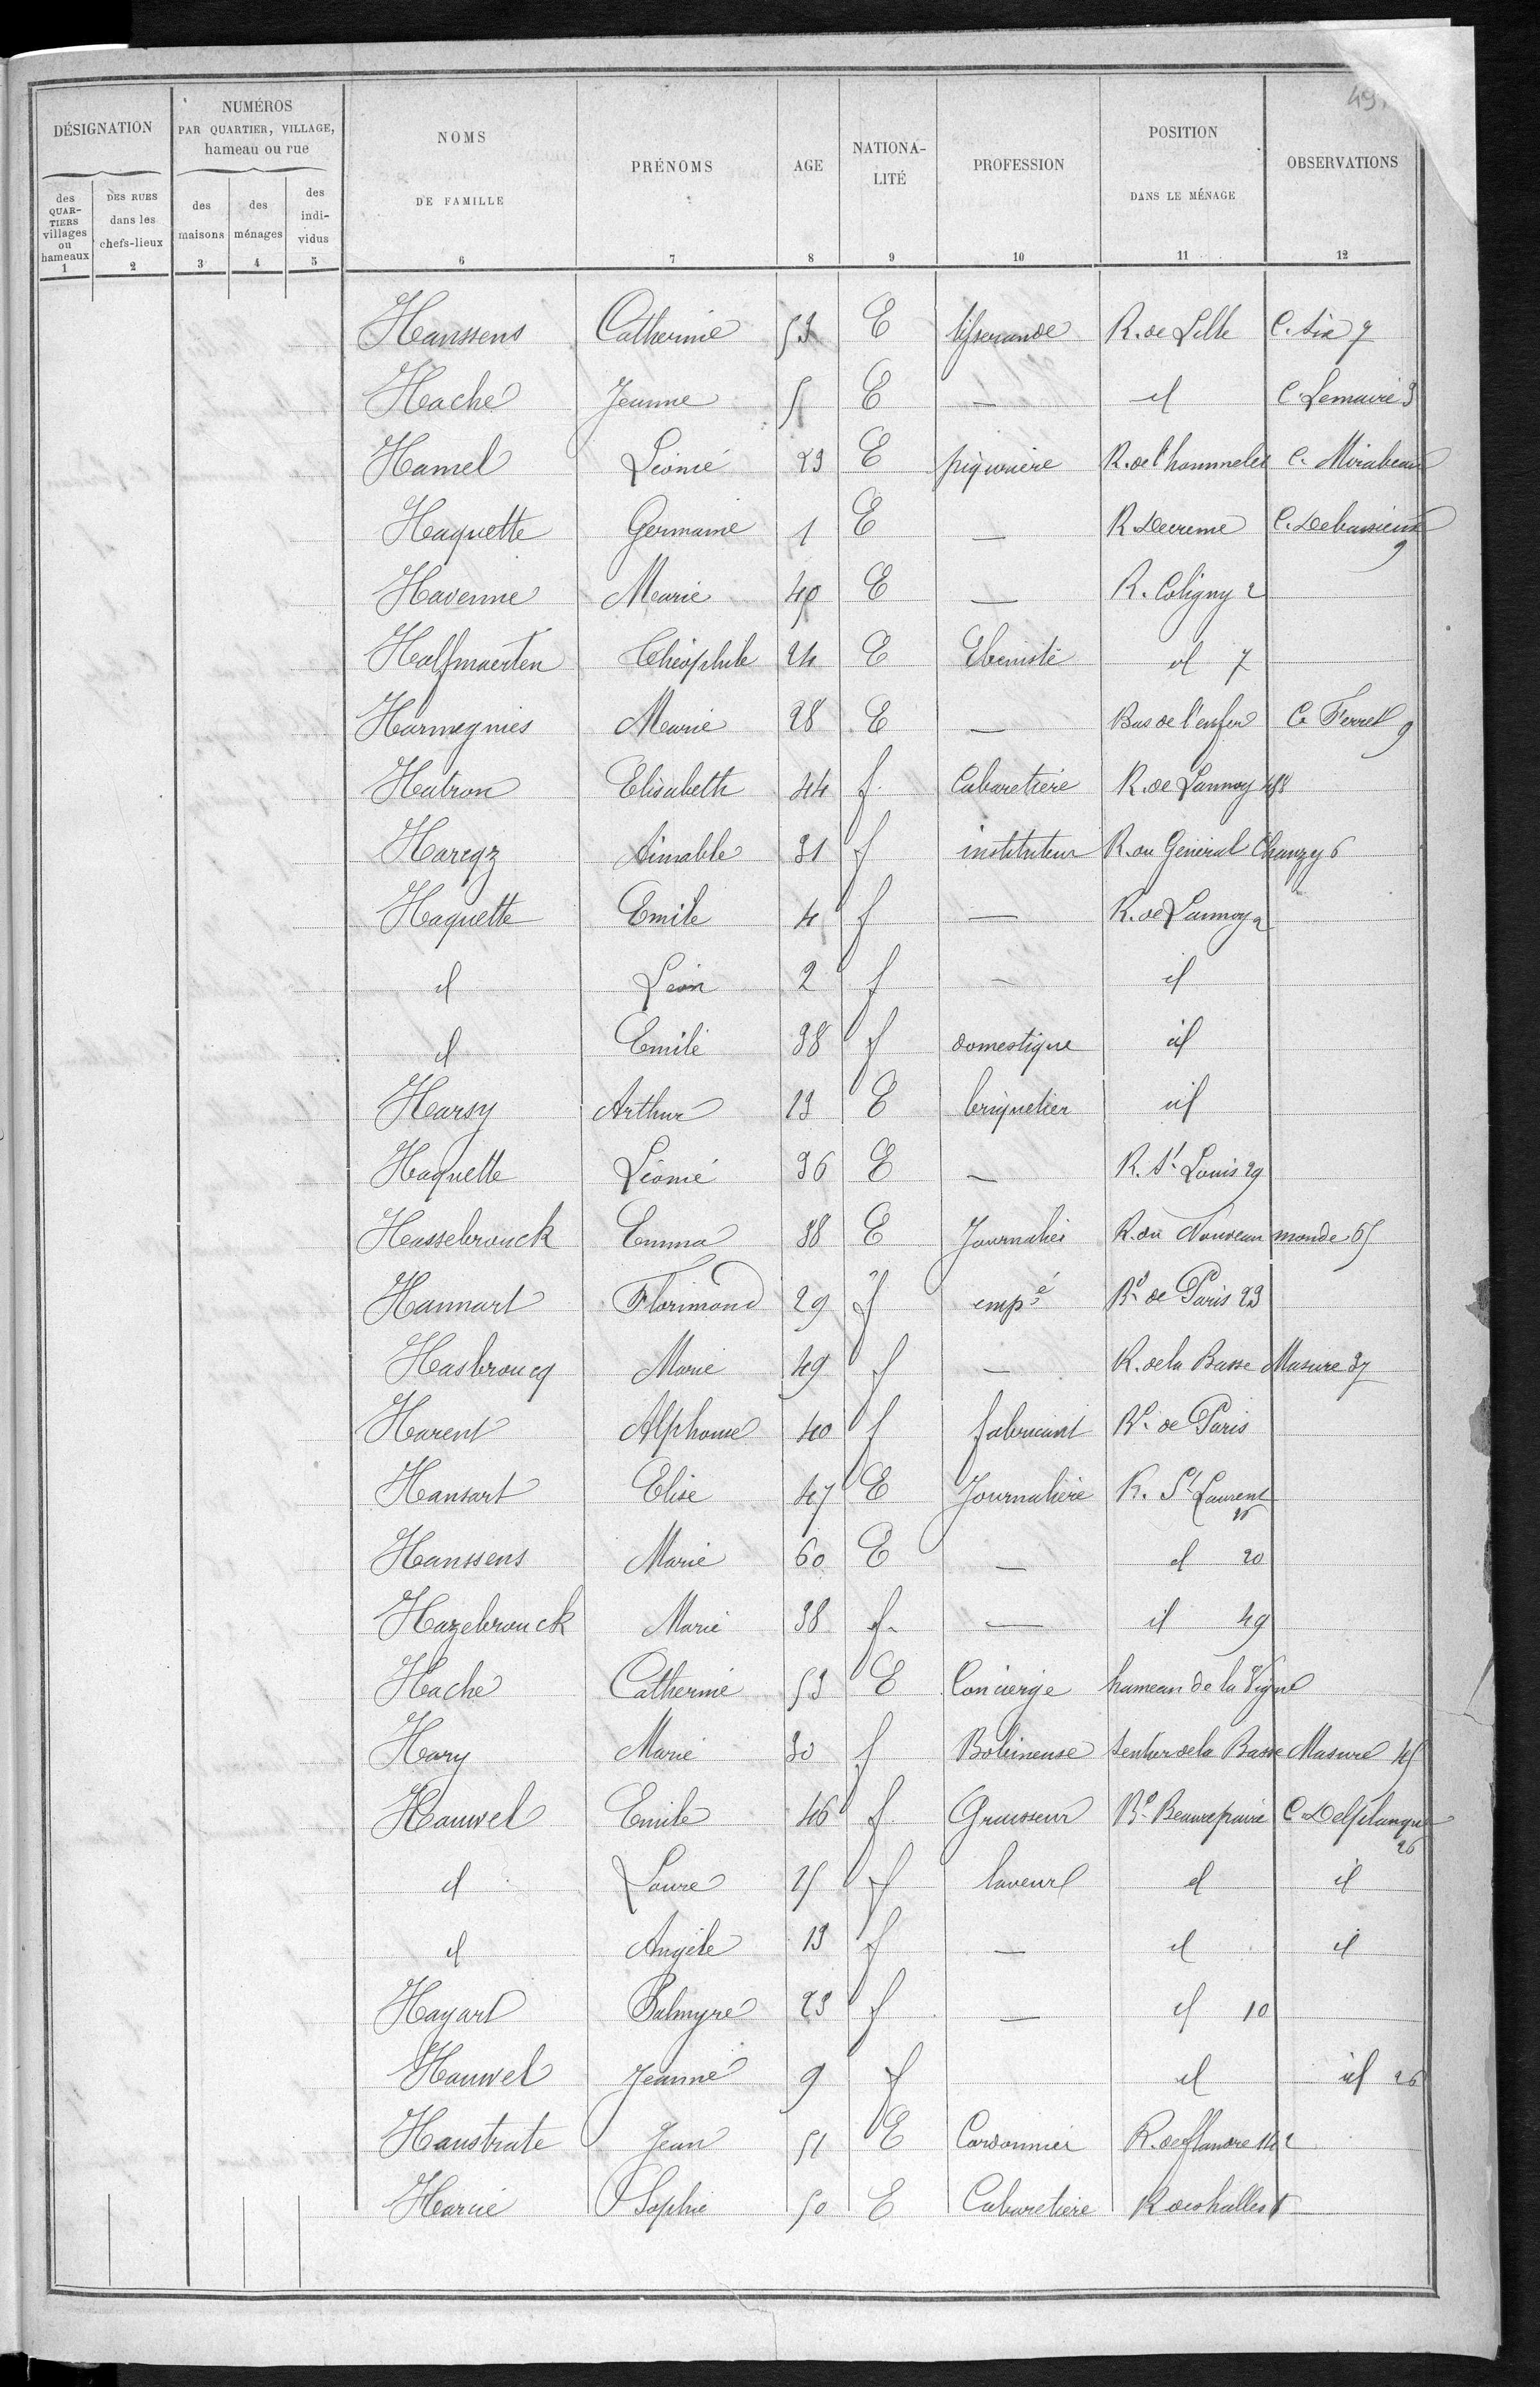 491
DÉSIGNATION | NUMÉROS PAR QUARTIER, VILLAGE, hameau ou rue | NOMS DE FAMILLE | PRÉNOMS | AGE | NATIONA-LITÉ | PROFESSION | POSITION DANS LE MÉNAGE | OBSERVATIONS
des QUAR-TIERS villages ou hameaux | DES RUES dans les chefs-lieux | des maisons | des ménages | des indi-vidus
1 2 3 4 5 6 7 8 9 10 11 12
Hanssens Catherine 53 E tisserande R. de Lille C. Six 7
Hache Jeanne 5 E — id C. Lemaire 3
Hamel Léonie 23 E piqurière R. de l'hommelet C. Mirabeau
Haquette Germaine 1 E — R. Decreme C. Debussieux 9
Havenne Marie 40 E — R. Coligny 2
Halfmaerten Théophile 24 E Ebeniste id 7
Harmegnies Marie 28 E — Bas de l'enfer C. Ferret 9
Hatron Elisabeth 44 f. Cabaretière R. de Lannoy 488
Haregz Aimable 31 f instituteur R. du Général Chanzy 6
Haquette Emile 4 f — R. de Lannoy 2
id Léon 2 f — id
id Emile 38 f domestique id
Harsy Arthur 13 E briquetier id
Haquette Léonie 36 E — R. St Louis 29
Hassebrouck Emma 38 E Journalièr R. du Nouveau monde 65
Hannart Florimond 29 f empé Bd de Paris 23
Hasbroucq Marie 49 f — R. de la Basse Masure 37
Harent Alphonse 40 f fabricant Bd de Paris
Hansart Elise 47 E Journalière R. St Laurent 16
Hanssens Marie 60 E — id 20
Hazebrouck Marie 38 f. — id 49
Hache Catherine 53 E Concierge hameau de la Vigne
Hary Marie 30 f Bobineuse Sentier de la Basse Masure 45
Hauwel Emile 46 f Graisseur Bd Beaurepaire C. Delplanque 26
id Laure 25 f laveur id id
id Angèle 13 f — id id
Hayart Palmyre 23 f — id 10
Hauwel Jeanne 9 f id id 26
Haustrate Jean 51 E Cordonnier R. de flandre 142
Harcie Sophie 50 E Cabaretière R des halles 1